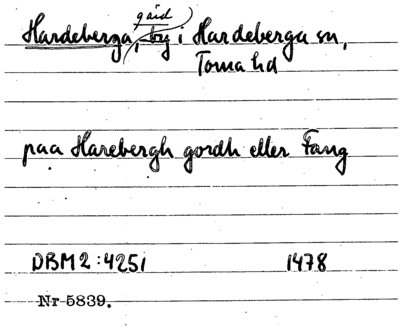 gård
Hardeberga, by i Hardeberga sn,
Torna hd
paa Harebergh gordh eller Fang
DBM 2:4251 1478
Nr 5839.